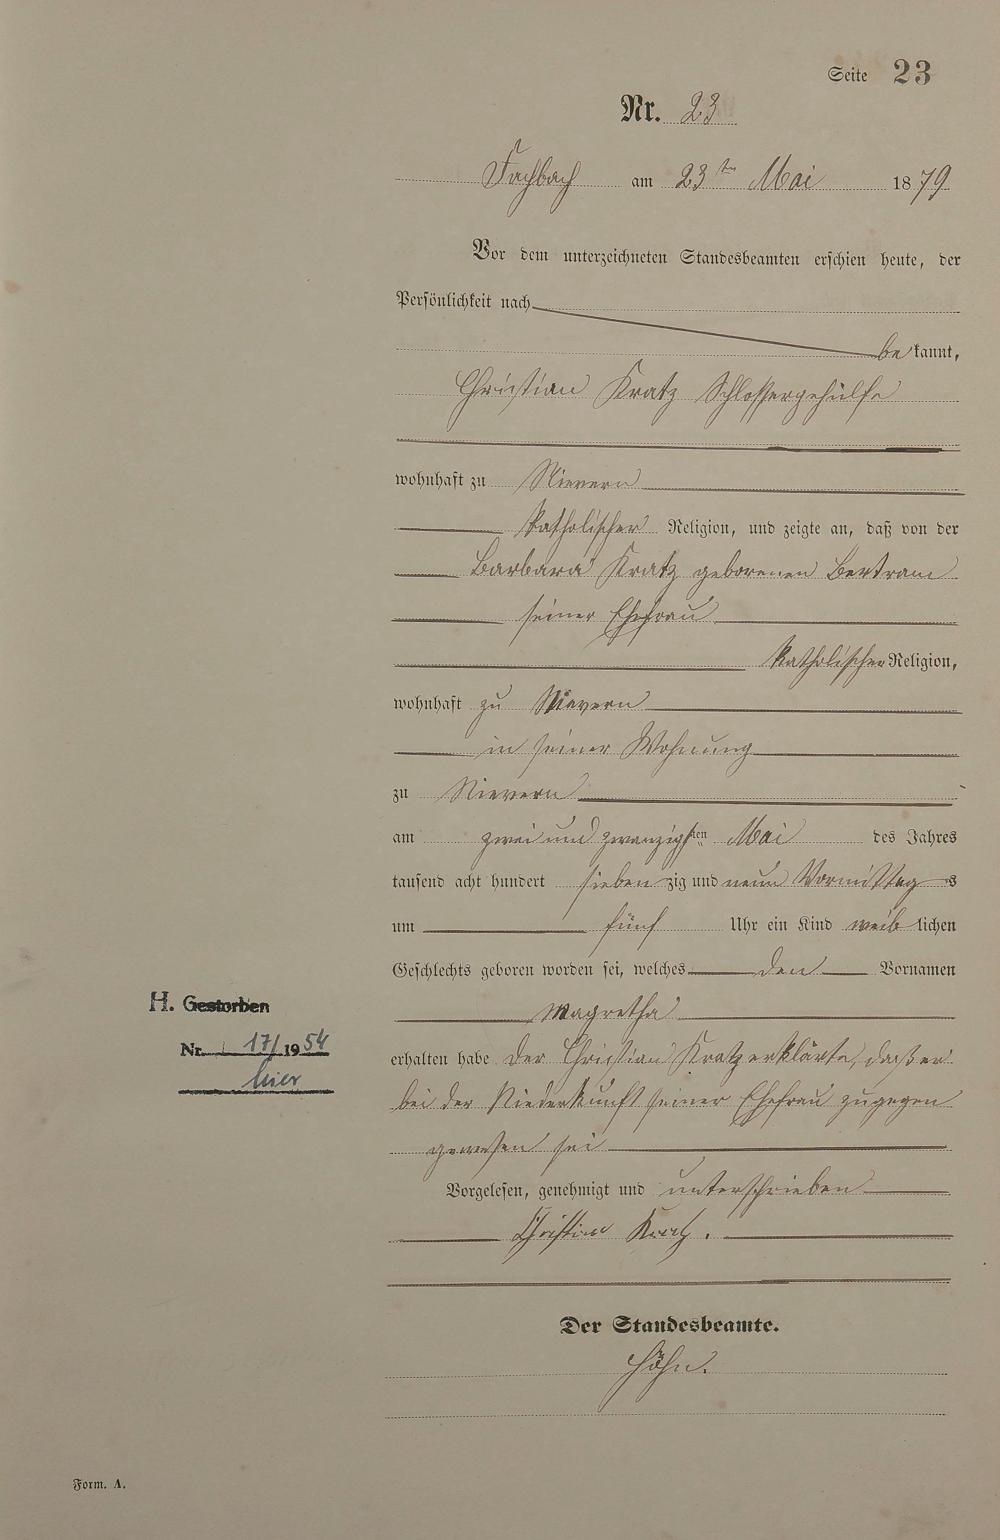 Seite 23
Nr. 23
Fachbach am 23ten Mai 1879
Vor dem unterzeichneten Standesbeamten erschien heute, der
Persönlichkeit nach
be kannt,
Christian Kratz Schlossergehülfe
wohnhaft zu Nievern
katholischer Religion, und zeigte an, daß von der
Barbara Kratz geborenen Bertram
seiner Ehefrau
katholischer Religion,
wohnhaft zu Nievern
in seiner Wohnung
zu Nievern
am zwei und zwanzigsten Mai des Jahres
tausend acht hundert sieben zig und neun Vormittag s
um fünf Uhr ein Kind weib lichen
Geschlechts geboren worden sei, welches den Vornamen
Magretha
H. Gestorben
Nr. 17/1954
hier
erhalten habe Der Christian Kratz erklärte, daß er
bei der Niederkunft seiner Ehefrau zugegen
gewesen sei
Vorgelesen, genehmigt und unterschrieben
Christian Kratz.
Der Standesbeamte.
Höhn.
Form. A.